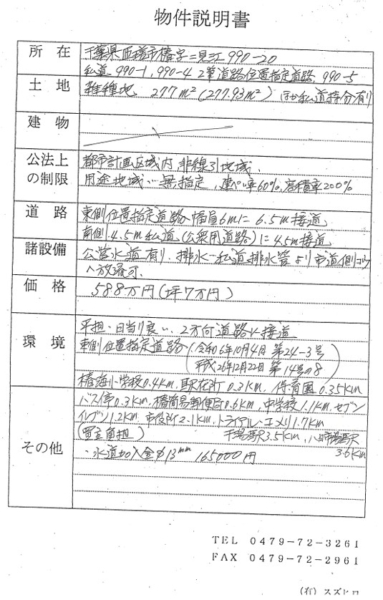 物件説明書
所在
千葉県匝瑳市椿字二見江990-20
私道 990-1, 990-4 2筆 道路位置指定道路 990-5
土地
雑種地 277㎡ (277.93㎡) ほか私道持分有り
建物
公法上の制限
都市計画区域内 非線引地域
用途地域 無指定 建ぺい率60% 容積率200%
道路
東側位置指定道路 幅員6mに6.5m接道
南側4.5m私道(公衆用道路)に4.5m接道
諸設備
公営水道有り、排水 私道排水管より
へ放流可
価格
588万円 (坪7万円)
環境
平担・日当り良い 2方向道路に接道
東側位置指定道路 (令和6年10月4日 第24-3号)
(平成26年12月22日 第14号の8)
椿海小学校0.4Km, 0.2Km, 保育園0.35Km
バス停0.3Km, 椿簡易郵便局0.6Km, 中学校1.1Km セブン
イレブン1.2Km 2.1Km トライアル 1.7Km
その他
(買主負担) 干潟駅3.5Km, 八日市場駅3.6Km
・水道加入金φ13mm 165,000円
TEL 0479-72-3261
FAX 0479-72-2961
(有) スズヒロ